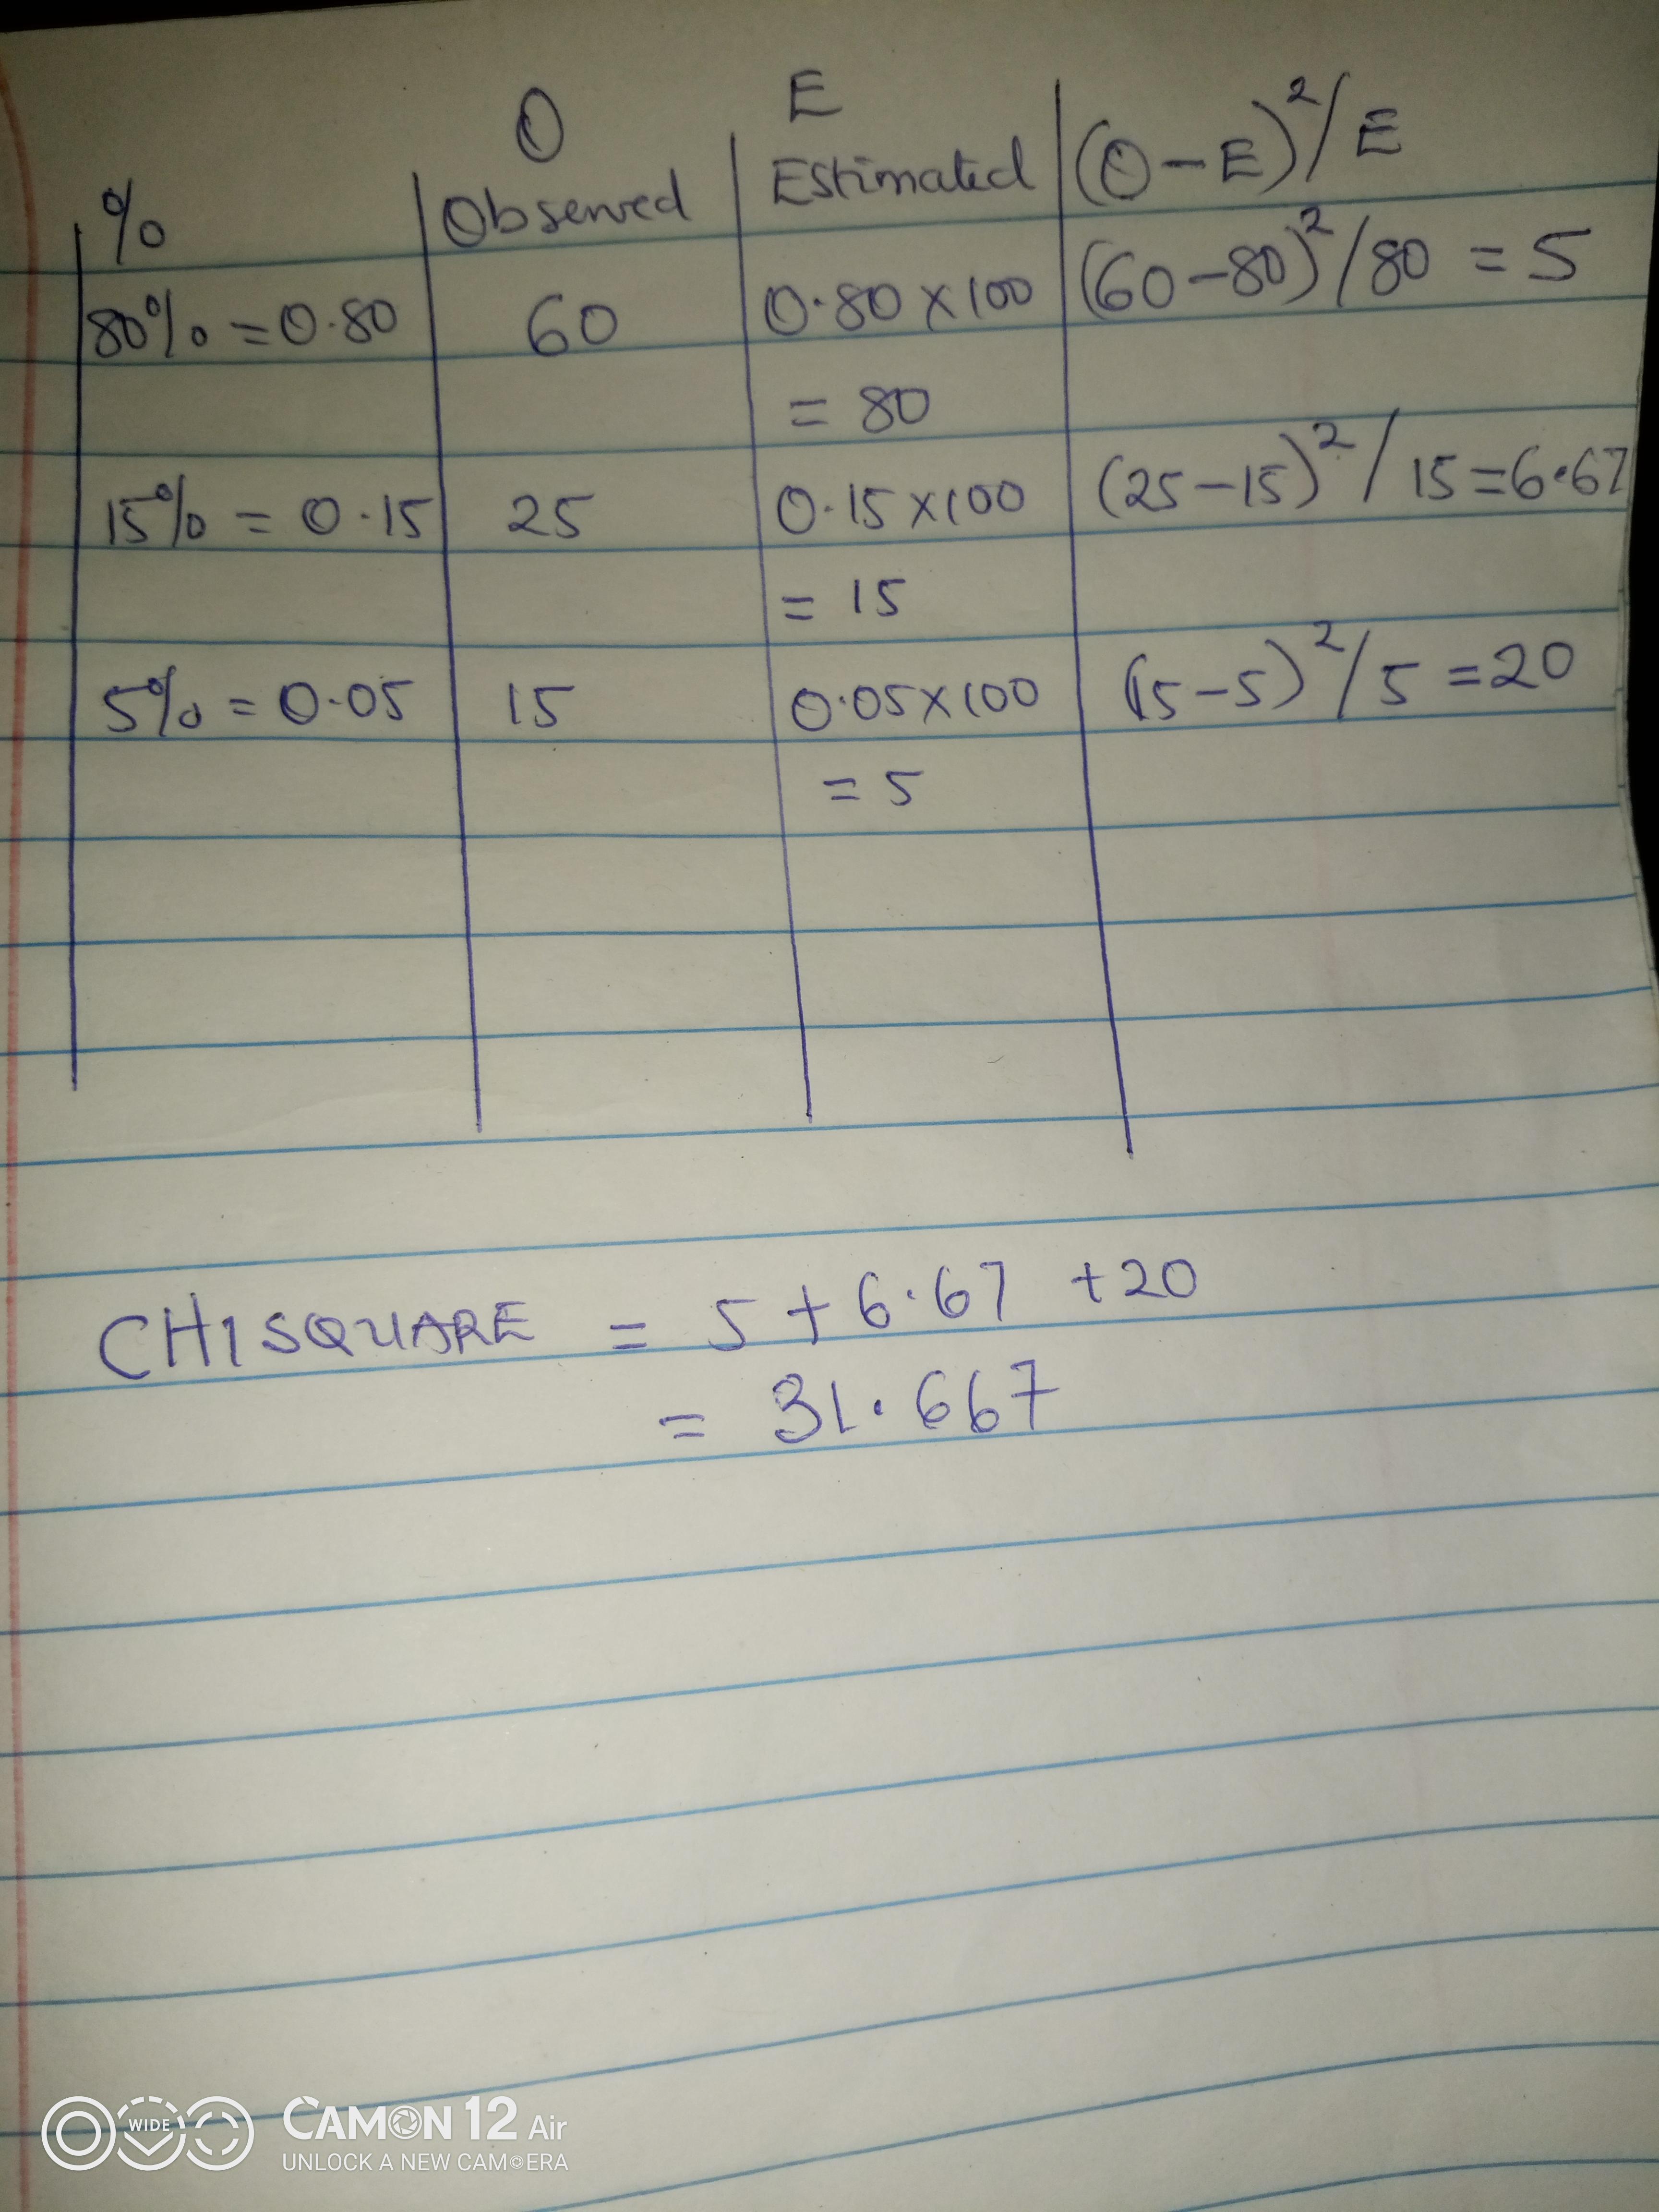 O E (O-E)²/E
% Observed Estimated
80% = 0.80 60 0.80 x 100 (60-80)²/80 = 5
= 80
15% = 0.15 25 0.15 x 100 (25-15)²/15 = 6.67
= 15
5% = 0.05 15 0.05 x 100 (15-5)²/5 = 20
= 5
CHISQUARE = 5 + 6.67 + 20
= 31.667
WIDE
CAMON 12 Air
UNLOCK A NEW CAMERA